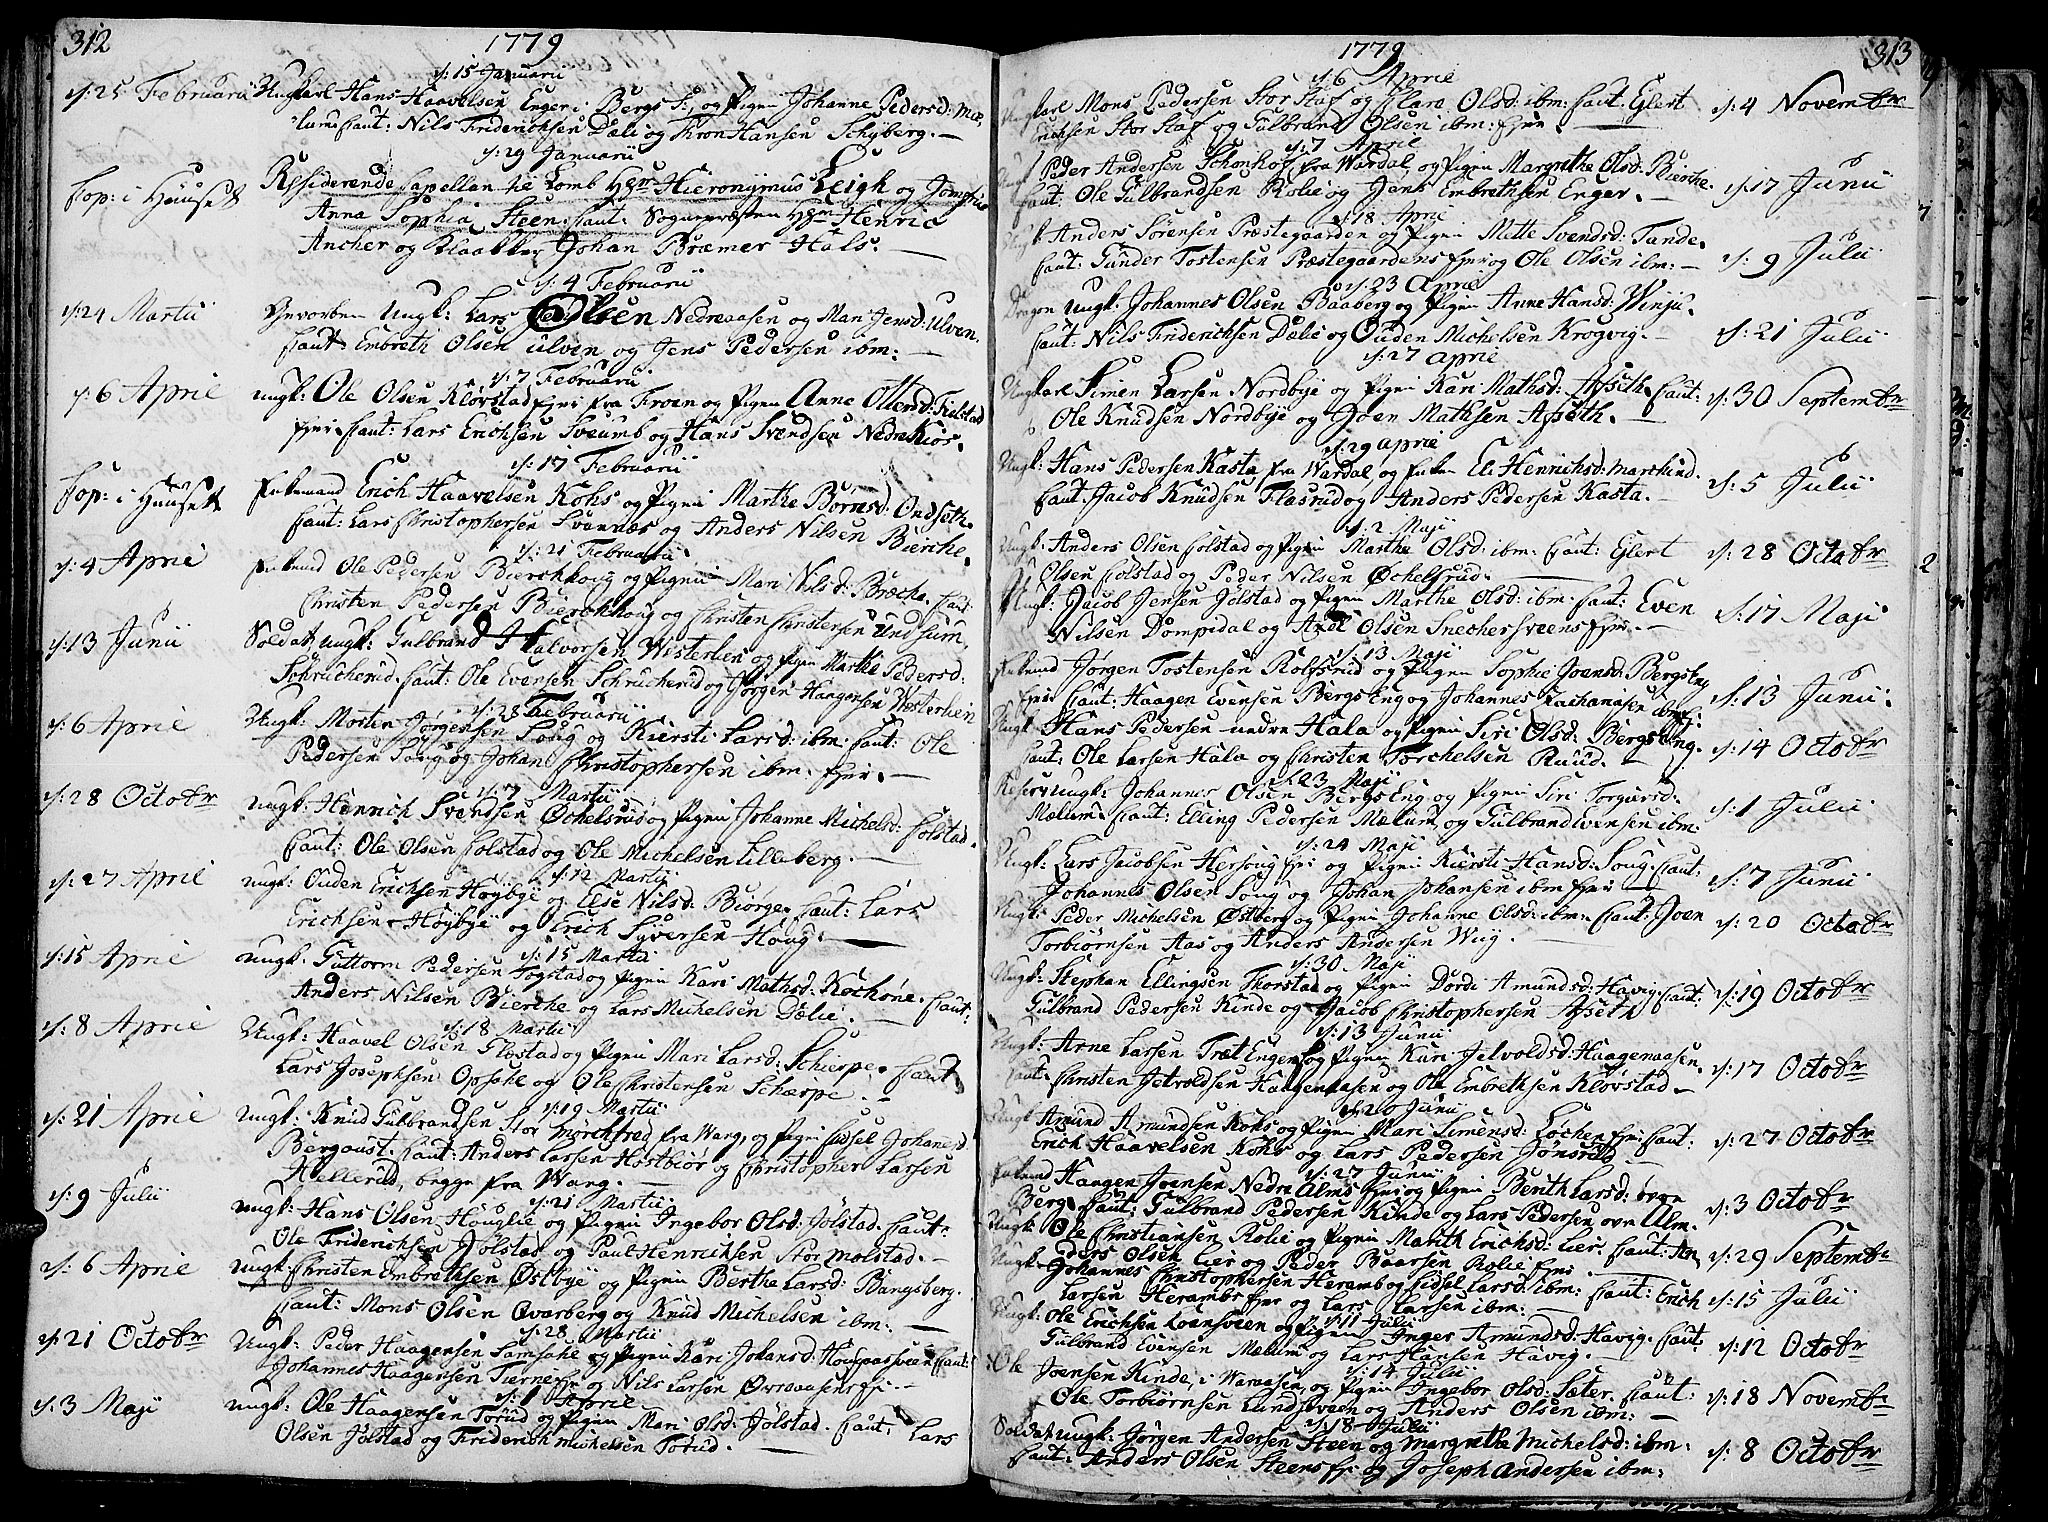 312
1779
d: 15 Januarii
d: 25 Februarii Ungkarl Hans Haavelsen Enger i Bergs F: og Pigen Johanne Pedersd: Mæ-
lum Caut: Nils Friderichsen Dæli og Hansen Schyberg. —
d: 29 Januarii
Cop: i Huuset Residerende Capellan til Lomb Hr Hieronymus Leigh og Jomfrue
Anna Sophia Steen. Caut: Sognepræsten Hr Henric
Ancher og Johan Bræmer Hals. —
d: 4 Februarii
d: 24 Martii Gevorben Ungk: Lars Olsen Nedreaasen og Mari Jensd: Ulven.
Caut: Embreth Olsen Ulvin og Jens Pedersen ibm: —
d: 7 Februarii
d: 6 April Ungk: Ole Olsen Kløvstad fra Froen og Pigen Anne Ottersd: Fielstad
Caut: Lars Erichsen Sveumb og Hans Svendsen Nedre Kiøs.
d: 17 Februarii
Cop: i Huuset Enkemand Erich Haavelsen Kohs og Pigen Marthe Børresd: Ondseth.
Caut: Lars Christophersen Svennæs og Anders Nilsen Bierche.
d: 21 Februarii
d: 4 April Enkemd Ole Pedersen Bierchhoug og Pigen Mari Nilsd: Bræche. Caut:
Christen Pedersen Bierchhoug og Christen Christensen Undsum,
d: 13 Junii Soldat Ungk: Gulbrand Halvorsen Westerlien og Pigen Marthe Pedersd:
Schrucherud. Caut: Ole Evensen Schrucherud og Jørgen Haagensen Westerlien
d: 28 Februarii
d: 6 April Ungk: Morten Jørgensen Soug og Kiersti Larsd: ibm: Caut: Ole
Pedersen Soug og Johan Christophersen ibm: —
d: 7 Martii
d: 28 Octobr Ungk: Henrich Svendsen Øchelsrud og Pigen Johanne Michelsd: Colstad.
Caut: Ole Olsen Colstad og Ole Michelsen Lilleberg. —
d: 12 Martii
d: 27 April Ungk: Ouden Erichsen Høybye og Else Nilsd: Biørge. Caut: Lars
Erichsen Høybye og Erich Syversen Houg. —
d: 15 Martii
d: 15 April Ungk: Guttorm Pedersen Fogstad og Pigen Kari Mathsd: Kochøne. Caut:
Anders Nilsen Bierche og Lars Michelsen Dælie. —
d: 18 Martii
d: 8 April Ungk: Haavel Olsen Flæstad og Pigen Mari Larsd: Schierpe. Caut:
Lars Josephsen Opsahl og Ole Christensen Schærpe. —
d: 19 Martii
d: 21 April Ungk: Knud Gulbrandsen Stor Mørchfred fra Wang, og Pigen Eidsel Johannesd:
Bergaust. Caut: Anders Larsen Hostbiør og Christopher Larsen
Hellerud, begge fra Wang. —
d: 21 Martii
d: 9 Julii Ungk: Hans Olsen Houglie og Pigen Ingebor Olsd: Jølstad. Caut:
Ole Friderichsen Jølstad og Paul Henrichsen Stor Molstad. —
d: 6 April Ungk: Christen Embrethsen Østbye og Pigen Berthe Larsd: Bangsberg.
Caut: Mons Olsen Qvarberg og Knud Michelsen ibm: —
d: 28 Martii
d: 21 Octobr Ungk: Peder Haagensen Samsahl og Pigen Kari Johansd: Caut:
Johannes Haagensen Tierne og Nils Larsen —
d: 1 April
d: 3 Maji Ungk: Ole Haagensen Torud og Pigen Mari Olsd: Jølstad. Caut: Lars
Olsen Jølstad og Friderich Michelsen Torud. —
1779
313
d: 6 April
Ungkarl Mons Pedersen Stor Staf og Clara Olsd: ibm: Caut: Eylert d: 4 Novembr
Erichsen Stor Staf og Gulbrand Olsen ibm: —
d: 7 April
Ungk: Peder Andersen Schonhof fra Wardal, og Pigen Margrethe Olsd: Bierche.
Caut: Ole Gulbrandsen Rolie og Jens Embrethsen Enger. — d: 17 Junii
d: 18 April
Ungk: Anders Sørensen Præstegaarden og Pigen Mette Svendsd: Tande.
Caut: Gunder Tostensen Præstegaardens og Ole Olsen ibm: — d: 9 Julii
d: 23 April
Dragon Ungk: Johannes Olsen Baaberg og Pigen Anne Hansd: Winju.
Caut: Nils Friderichsen Dæli og Ouden Michelsen Krogvig. — d: 21 Julii
d: 27 April
Ungkarl Simen Larsen Nordbye og Pigen Kari Mathsd: Afseth. Caut: d: 30 Septembr
Ole Knudsen Nordbye og Joen Mathsen Afseth. —
d: 29 April
Ungk: Hans Pedersen Kasta fra Wardal og Enken Eli Henrichsd: d: 5 Julii
Caut. Jacob Knudsen Flasrud og Anders Pedersen Kasta. —
d: 2 Maji
Ungk: Anders Olsen Colstad og Pigen Marthe Olsd: ibm: Caut: Eylert d: 28 Octobr
Olsen Colstad og Peder Nilsen Øchelsrud. —
Ungk: Jacob Jensen Jølstad og Pigen Marthe Olsd: ibm: Caut: Even d: 17 Maji
Nilsen Dompidal og Axel Olsen Snechersveens —
d: 13 Maji
Enkemd Jørgen Tostensen Rolfsrud og Pigen Sophie Joensd: Bergseng
Caut: Haagen Evensen Bergseng og Johannes Zachariasen d: 13 Junii.
Ungk: Hans Pedersen nedre Hala og Pigen Siri Olsd: Bergseng.
Caut: Ole Larsen Hala og Christen Torchelsen Ruud. — d: 14 Octobr
d: 23 Maji
Reserve Ungk: Johannes Olsen Bergseng og Pigen Siri Torgersd:
Mælum. Caut: Elling Pedersen Mælum og Gulbrand Evensen ibm: d: 1 Julii
d: 24 Maji
Ungk: Lars Jacobsen Hersoug og Pigen Kiersti Hansd: Soug. Caut:
Johannes Olsen Soug og Johan Johansen ibm — d: 7 Junii
Ungk: Peder Michelsen Østberg og Pigen Johanne Olsd: ibm: Caut: Joen d: 20 Octobr
Torbiørnsen Aas og Anders Andersen Wiig. —
d: 30 Maji
Ungk: Stephan Ellingsen Thorstad og Pigen Dordi Amundsd: Havig. Caut: d: 19 Octobr
Gulbrand Pedersen Kinde og Jacob Christophersen Afseth
d: 13 Junii
Ungk: Arne Larsen Træt Engen og Pigen Kari Jetvoldsd: Haagenaasen.
Caut: Christen Jetvoldsen Haagenaasen og Ole Embrethsen Kløvstad — d: 17 Octobr
d: 20 Junii
Ungk: Amund Amundsen Kohs og Pigen Mari Simensd: Løchen Caut: d: 27 Octobr
Erich Haavelsen Kohs og Lars Pedersen Jønsrud
d: 27 Junii
Enkemd Haagen Joensen Nedre Alms og Pigen Berith Larsd: øvre
Berg. Caut: Gulbrand Pedersen Kinde og Lars Pedersen øvre Alm. d: 3 Octobr
Ungk: Ole Christiansen Rolie og Pigen Marith Erichsd: Lier. Caut: An-
ders Olsen Lier og Peder Baarsen Rolie d: 29 Septembr
Ungk: Johannes Christophersen Heramb og Eidsel Larsd: ibm: Caut: Erich
Larsen Herambs og Lars Larsen ibm: — d: 15 Julii
d: 11 Julii
Ungk: Ole Erichsen Loensveen og Pigen Inger Amundsd: Havig. Caut:
Gulbrand Evensen Mælum og Lars Hansen Havig. — d: 12 Octobr
d: 14 Julii
Ole Joensen Kinde, i Waraasen, og Pigen Ingebor Olsd: Sæter. Caut:
Ole Torbiørnsen Lundsveen og Anders Olsen ibm: — d: 18 Novembr
d: 18 Julii
Soldat Ungk: Jørgen Andersen Steen og Margrethe Michelsd: ibm.
Caut: Anders Olsen Steens og Joseph Andersen ibm: d: 8 Octobr